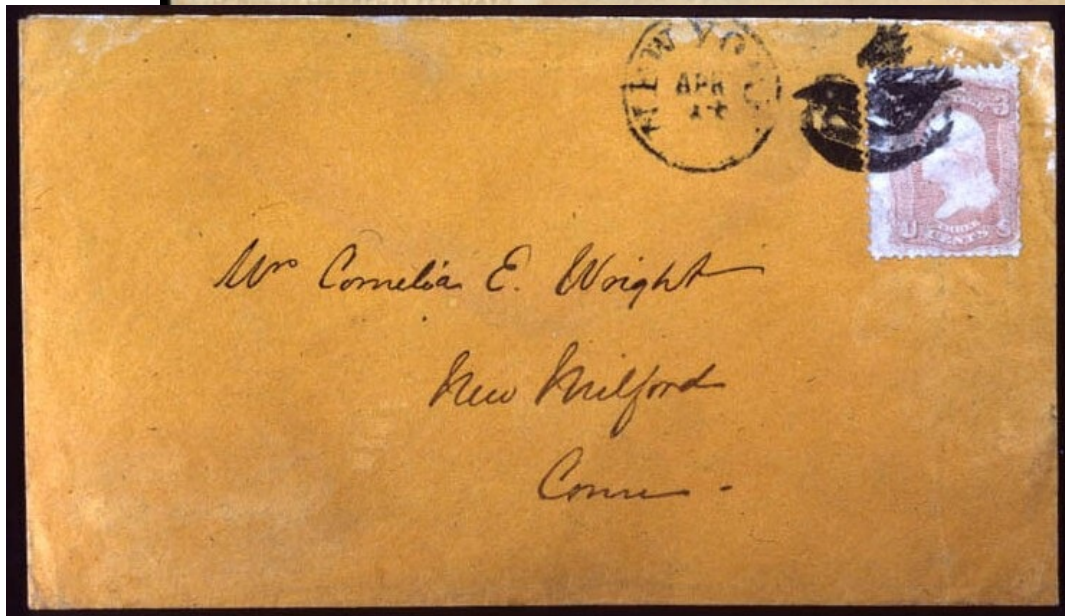 NEW YORK
APR
3
U S
THREE
CENTS
Mrs Cornelia E. Wright
New Milford
Conn -